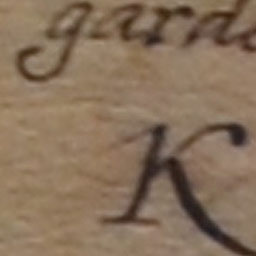 garde
K